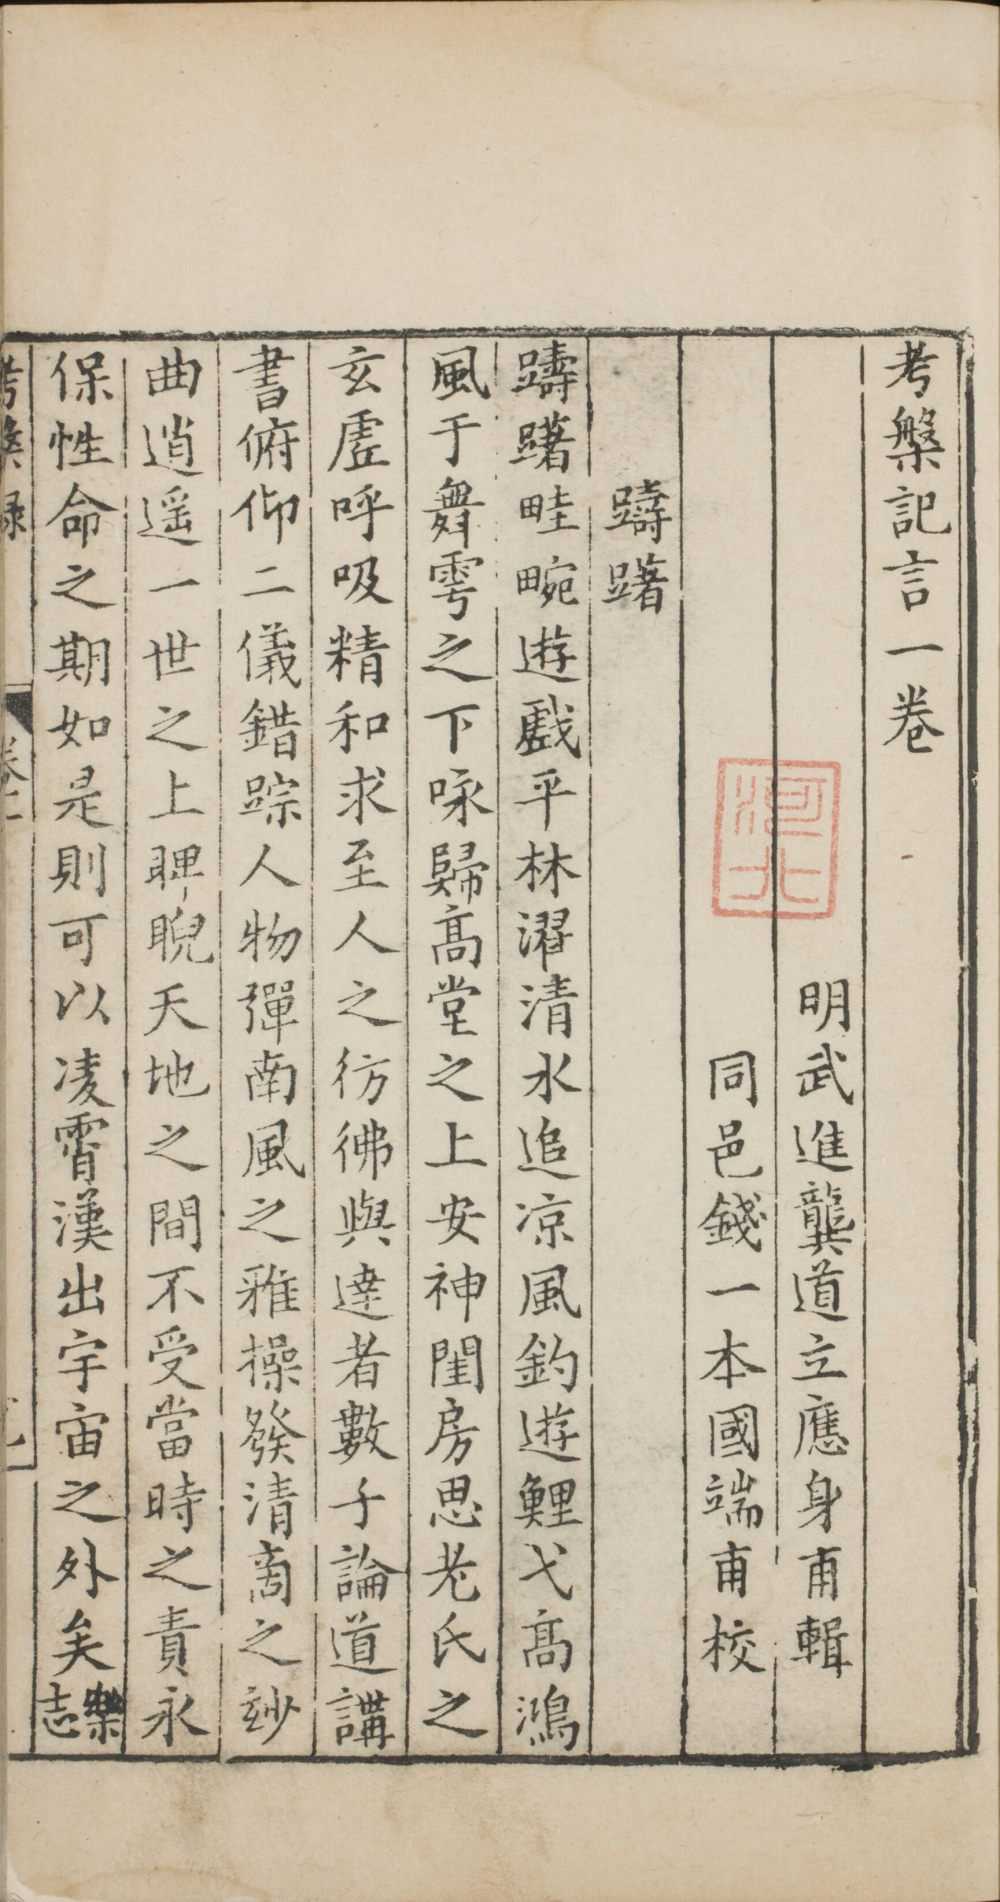 考槃記言一卷
明武進龔道立應身甫輯
同邑錢一本國端甫校
躊躇
躊躇畦畹遊戲平林濯清水追凉風釣遊鯉弋高鴻
風于舞雩之下咏歸高堂之上安神閨房思老氏之
玄虛呼吸精和求至人之彷彿與達者數子論道講
書俯仰二儀錯踪人物彈南風之雅操發清商之玅
曲逍遥一世之上睥睨天地之間不受當時之責永
保性命之期如是則可以凌霄漢出宇宙之外矣樂志
考槃録
卷一
河北